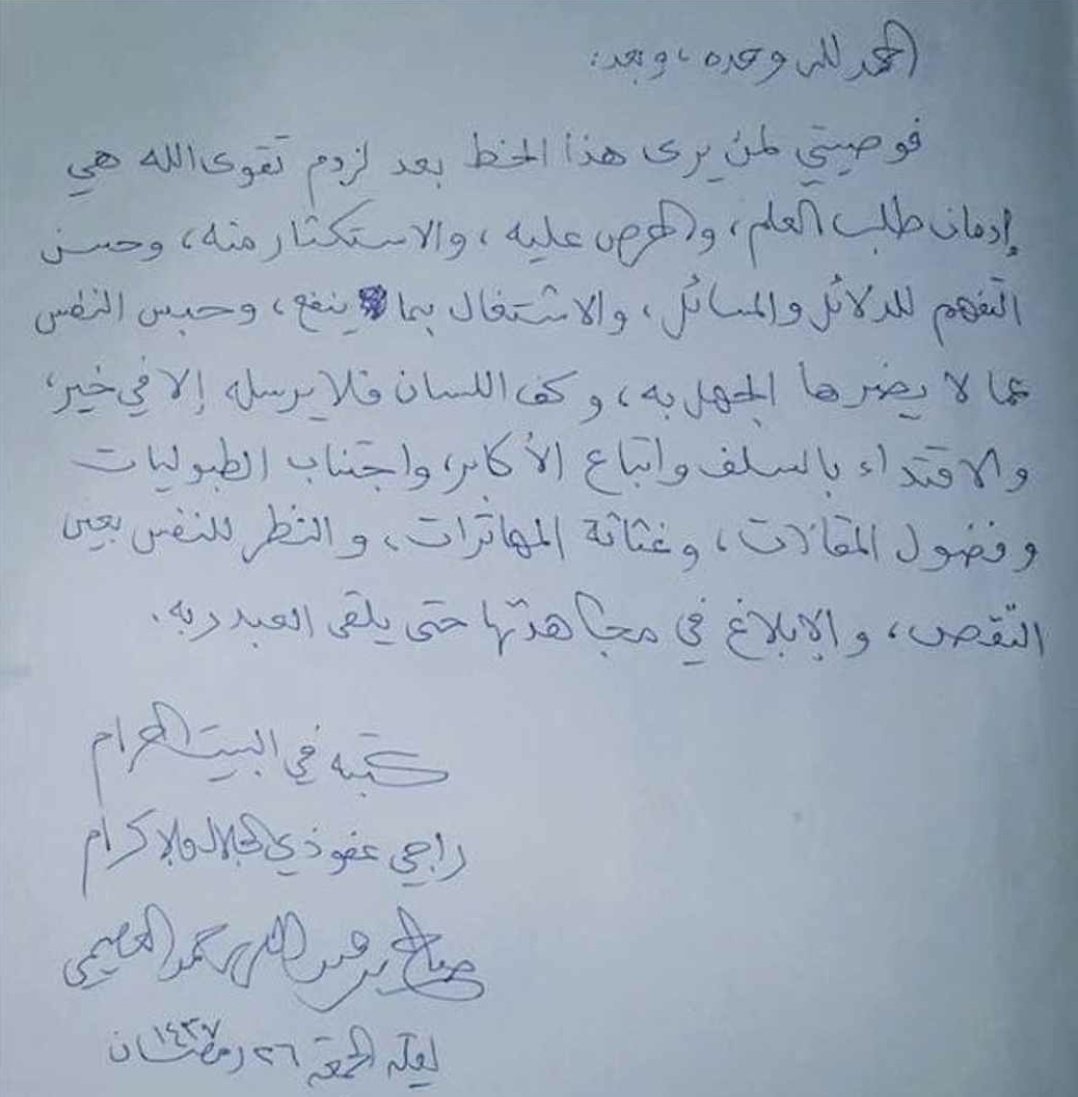 الحمد لله وحده، وبعد:
فوصيتي لمن يرى هذا الخط بعد لزوم تقوى الله هي
إدمان طلب العلم، والحرص عليه، والاستكثار منه، وحسن
التفهم للدلائل والمسائل، والاشتغال بما ينفع، وحبس النفس
عما لا يضرها الجهل به، وكف اللسان فلا يرسله إلا في خير،
والاقتداء بالسلف واتباع الأكابر، واجتناب الطبوليات
وفضول المقالات، وغثاثة المهاترات، والنظر للنفس بعين
النقص، والإبلاغ في مجاهدتها حتى يلقى العبد ربه.
كتبه في البيت الحرام
راجي عفو ذي الجلال والإكرام
صالح بن عبد الله بن حمد العصيمي
ليلة الجمعة ٢٦ رمضان ١٤٣٧